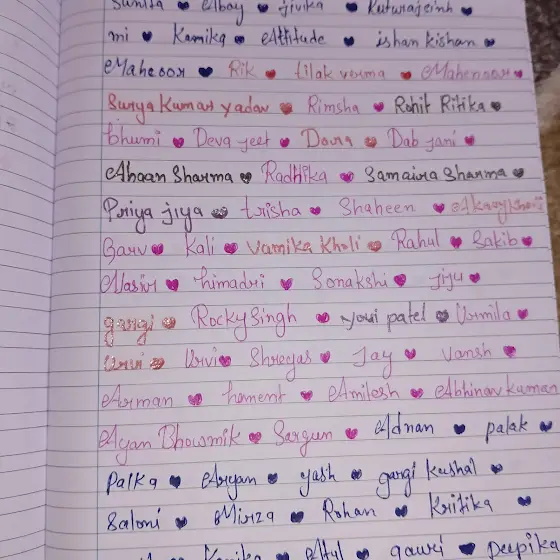 Sunita ♥ Abay ♥ jivika ♥ Ruturajsinh ♥
mi ♥ Kamika ♥ Attitude ♥ ishan kishan ♥
Maheoor ♥ Rik ♥ tilak verma ♥ Mahenoor ♥
Surya Kumar yadav ♥ Rimsha ♥ Rohit Ritika ♥
bhumi ♥ Deva jeet ♥ Dona ♥ Dab jani ♥
Ahaan Sharma ♥ Radhika ♥ Samaira Sharma ♥
Priya jiya ♥ trisha ♥ Shaheen ♥ Akaay Kholi
Garv ♥ Kali ♥ Vamika Kholi ♥ Rahul ♥ Sakib ♥
Nasir ♥ himadri ♥ Sonakshi ♥ Jiju ♥
gargi ♥ Rocky Singh ♥ youi patel ♥ Urmila ♥
Urvi ♥ Urvi ♥ Shreyas ♥ Jay ♥ Vansh ♥
Arman ♥ hement ♥ Amilesh ♥ Abhinav kuman
Ayan Bhowmik ♥ Sargun ♥ Adnan ♥ palak ♥
Palka ♥ Aryan ♥ yash ♥ gargi kushal ♥
Saloni ♥ Mirza ♥ Rohan ♥ Kritika ♥
Kanika ♥ Atul ♥ gauri ♥ Deepika